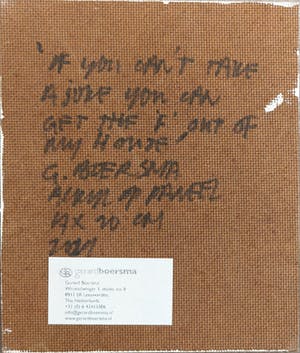 'IF YOU CAN'T TAKE
A JOKE YOU CAN
GET THE 'F' OUT OF
MY HOUSE'
G. BOERSMA
ACRYL OP PANEEL
20 CM
2021
gerardboersma
Gerard Boersma
The Netherlands
info@gerardboersma.nl
www.gerardboersma.nl